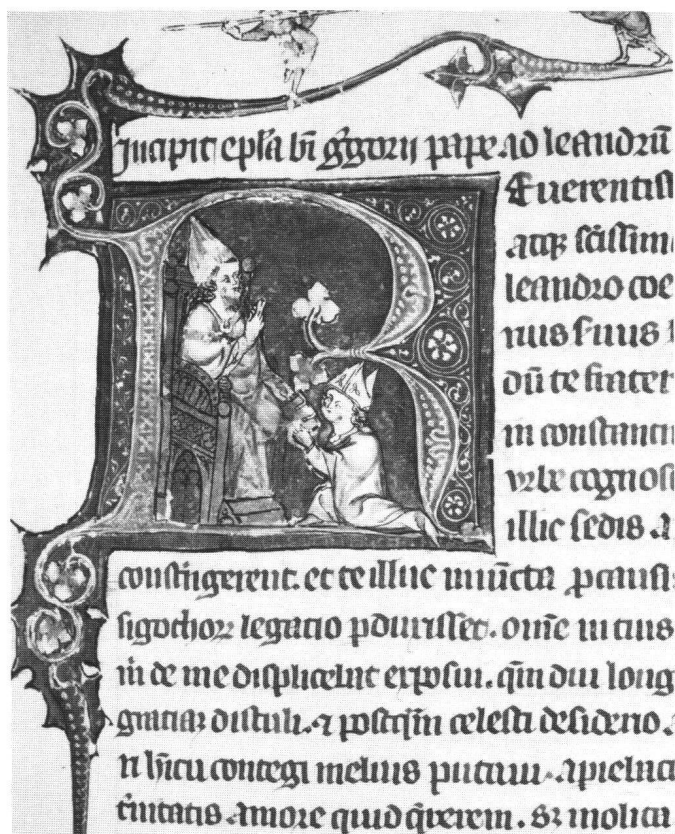 Incipit epl'a bi g'gorii pape. ad leandrū
Reuerentiss
atq; sc̄issim
leandro coe
nus suus
dū te frater
in constantin
vrbe cognos
illic sedis a
constrigerent. et te illuc iniūcta p causis
sigothoꝝ legatio pduxisset. om̄e in tuis
m̄ de me displicebat exposui. qm̄ diu long
gratiaꝝ distuli. ⁊ postqm̄ celesti desiderio.
ri h̄itu contegi melius putaui. apiebat
t'nitatis amore quid q̄rerem. sꝫ inolita